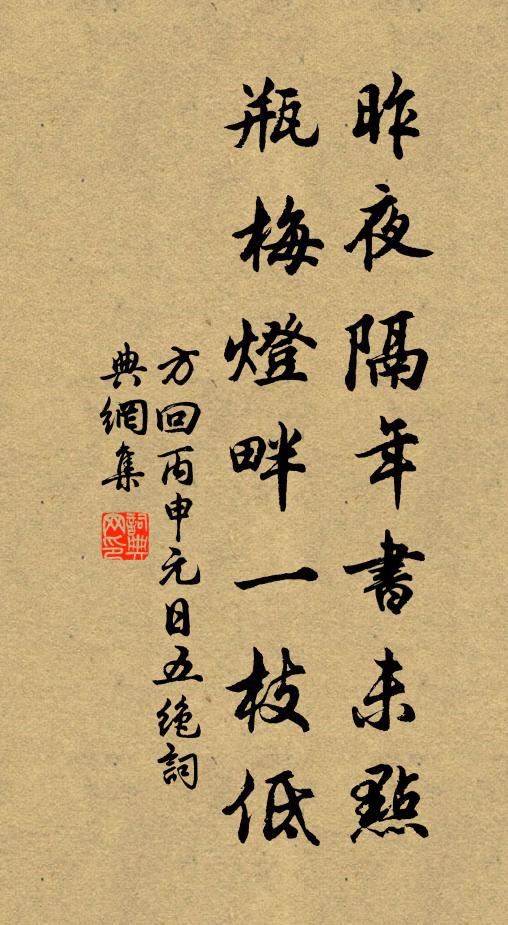 昨夜隔年書未點
瓶梅燈畔一枝低
方回丙申元日五絶詞
典網集
詞典
网印